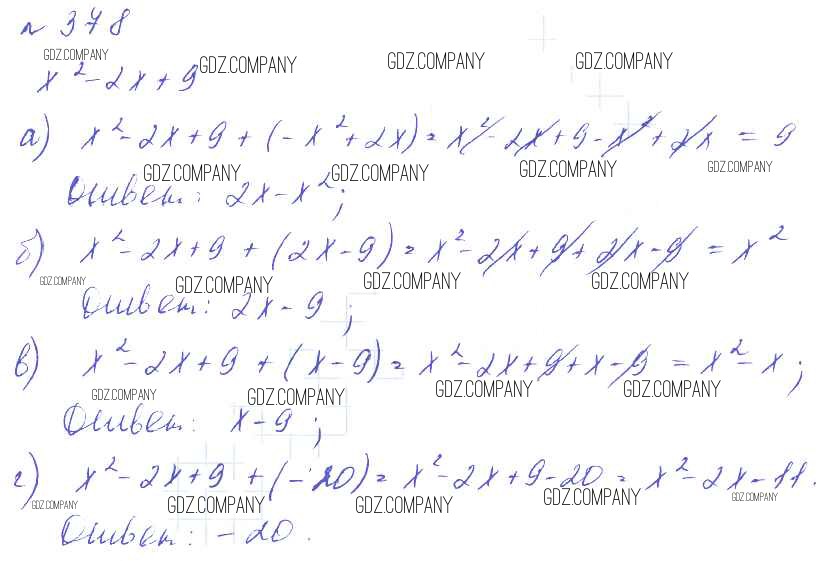 № 378
GDZ.COMPANY GDZ.COMPANY GDZ.COMPANY GDZ.COMPANY
x² - 2x + 9
а) x² - 2x + 9 + (-x² + 2x) = x² - 2x + 9 - x² + 2x = 9
GDZ.COMPANY GDZ.COMPANY GDZ.COMPANY GDZ.COMPANY
Ответ: 2x - x²;
б) x² - 2x + 9 + (2x - 9) = x² - 2x + 9 + 2x - 9 = x²
GDZ.COMPANY GDZ.COMPANY GDZ.COMPANY GDZ.COMPANY
Ответ: 2x - 9;
в) x² - 2x + 9 + (x - 9) = x² - 2x + 9 + x - 9 = x² - x;
GDZ.COMPANY GDZ.COMPANY GDZ.COMPANY GDZ.COMPANY
Ответ: x - 9;
г) x² - 2x + 9 + (-20) = x² - 2x + 9 - 20 = x² - 2x - 11.
GDZ.COMPANY GDZ.COMPANY GDZ.COMPANY GDZ.COMPANY GDZ.COMPANY
Ответ: -20.